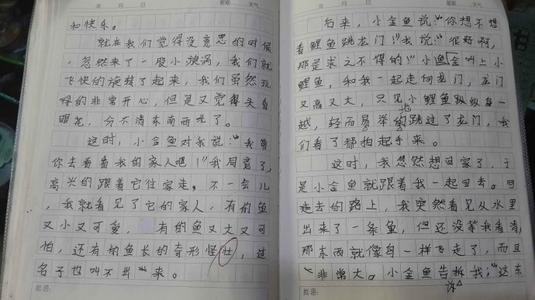 和快乐。
就在我们觉得没意思的时候
，忽然来了一股小漩涡，我们就
飞快的旋转了起来，我们虽然玩
得的非常开心，但是又觉得头昏
眼花，分不清东南西北了。
这时，小金鱼对我说："我带
你去看看我的家人吧！"我同意了，
高兴的跟着它往家走。不一会儿
，我就看见了它的家人，有的鱼
又小又可爱，有的鱼又大又可
怕，还有的鱼长的奇形怪壮，连
名子也叫不出来。
后来，小金鱼说："你想不想
看鲤鱼跳龙门？"我说："很好啊，
那是求之不得的"小鱼会叫上小
鲤鱼，和我一起走向龙门，龙门
又高又大，只见小鲤鱼纵身一
越，轻而易举的跳过了龙门，我
们看了都拍起手来。
这时，我忽然想回家了，于
是小金鱼就跟着我一起回去。可
走去的路上，我突然看见从水里
出来了一条鱼，但还没等我看清，
那东西就像鸟一样飞走了，而且
非常大。小金鱼告诉我："这东